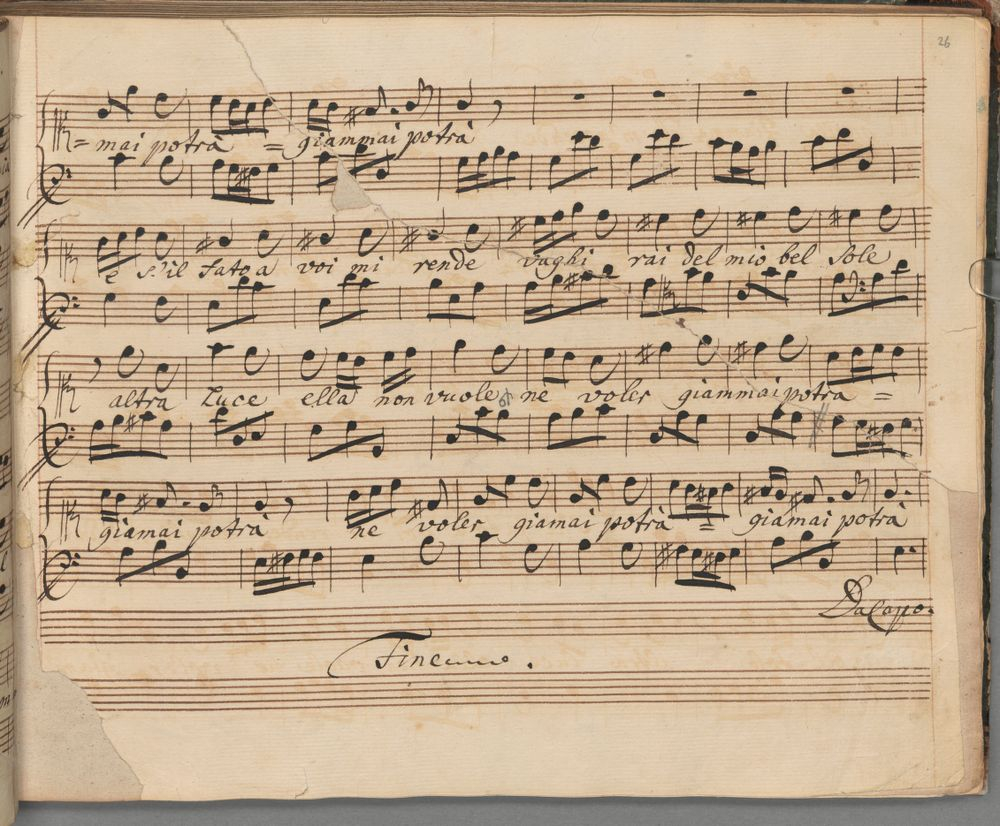 26
= mai potrà = giammai potrà
e s'il fato a voi mi rende vaghi rai del mio bel sole
altra luce ella non vuole ne voler giammai potra =
giamai potrà ne voler giamai potrà = giamai potrà
Da Capo.
Fine